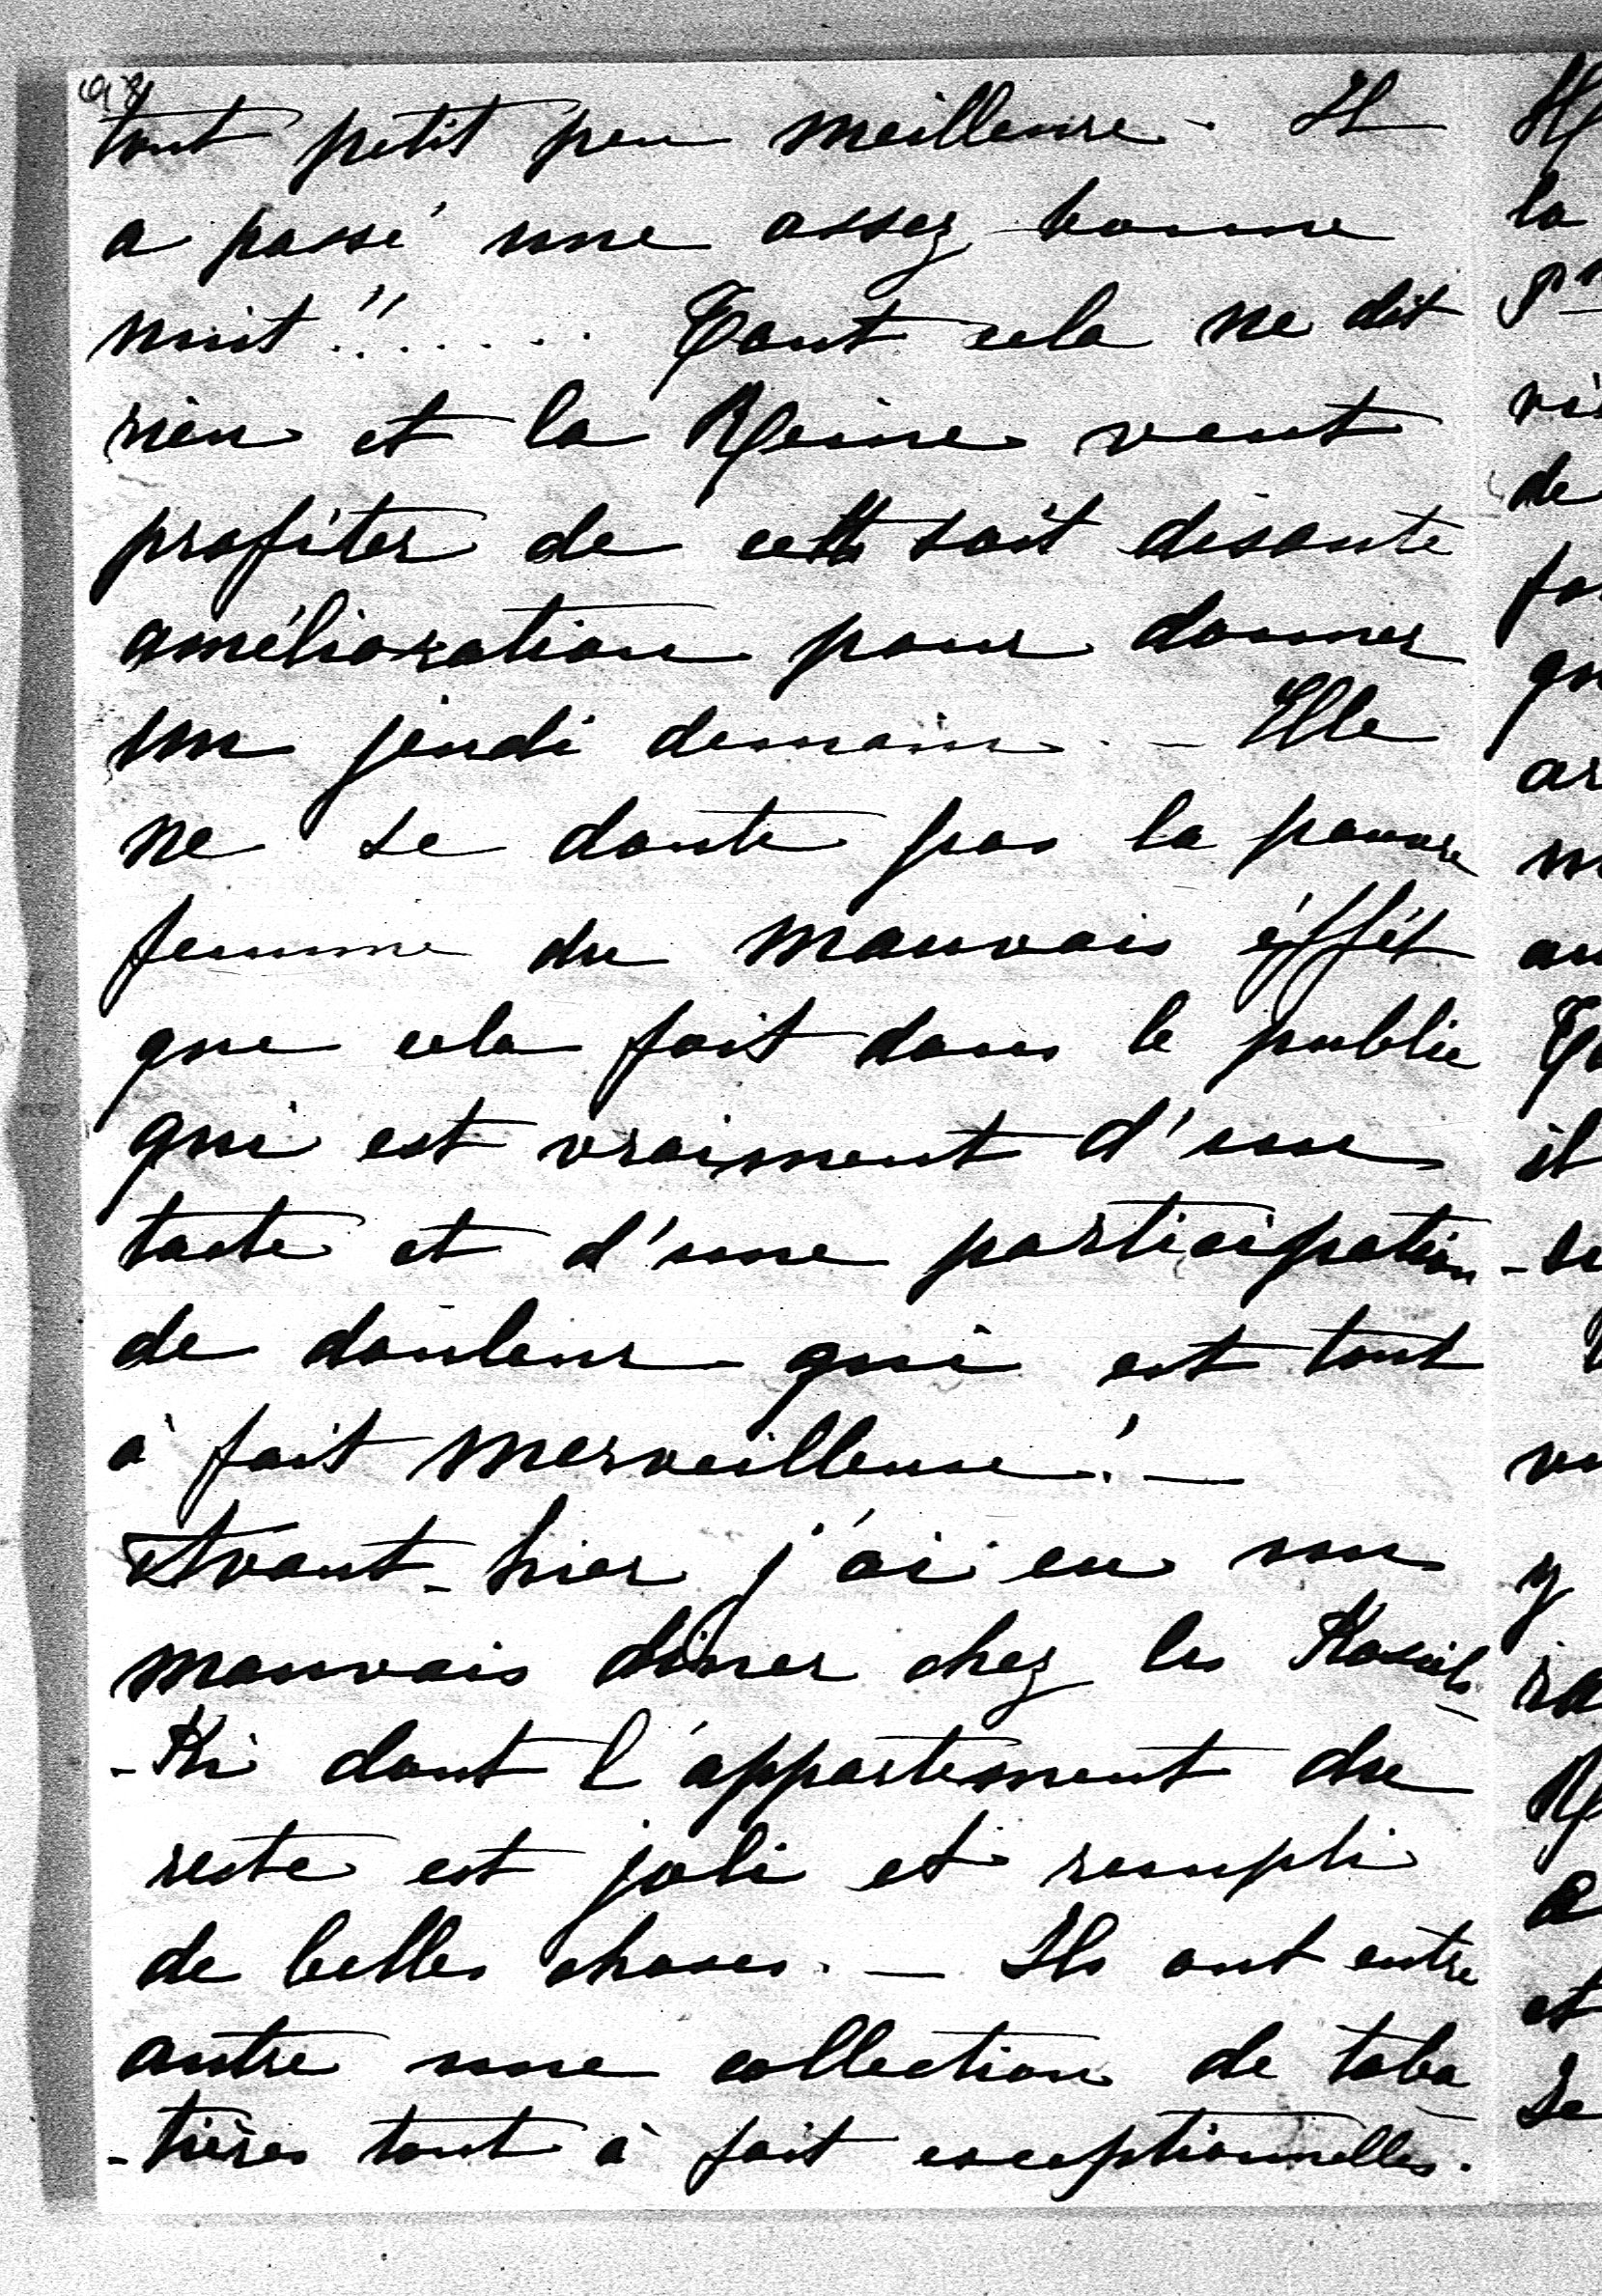 98
tout petit peu meilleure - Il
a passé une assez bonne
nuit"...... Tout cela ne dit
rien et la Reine veut
profiter de cette soit disante
amélioration pour donner
un jeudi demain. - Elle
ne se doute pas la pauvre
femme du mauvais éffét
que cela fait dans le public
qui est vraiment d'une
tacte et d'une participation
de douleur qui est tout
à fait merveilleuse! -
Avant-hier j'ai eu un
mauvais diner chez les
-Ki dont l'appartement du
reste est joli et rempli
de belles choses. - Ils ont entre
autre une collection de taba
-tières tout à fait exceptionnelles.